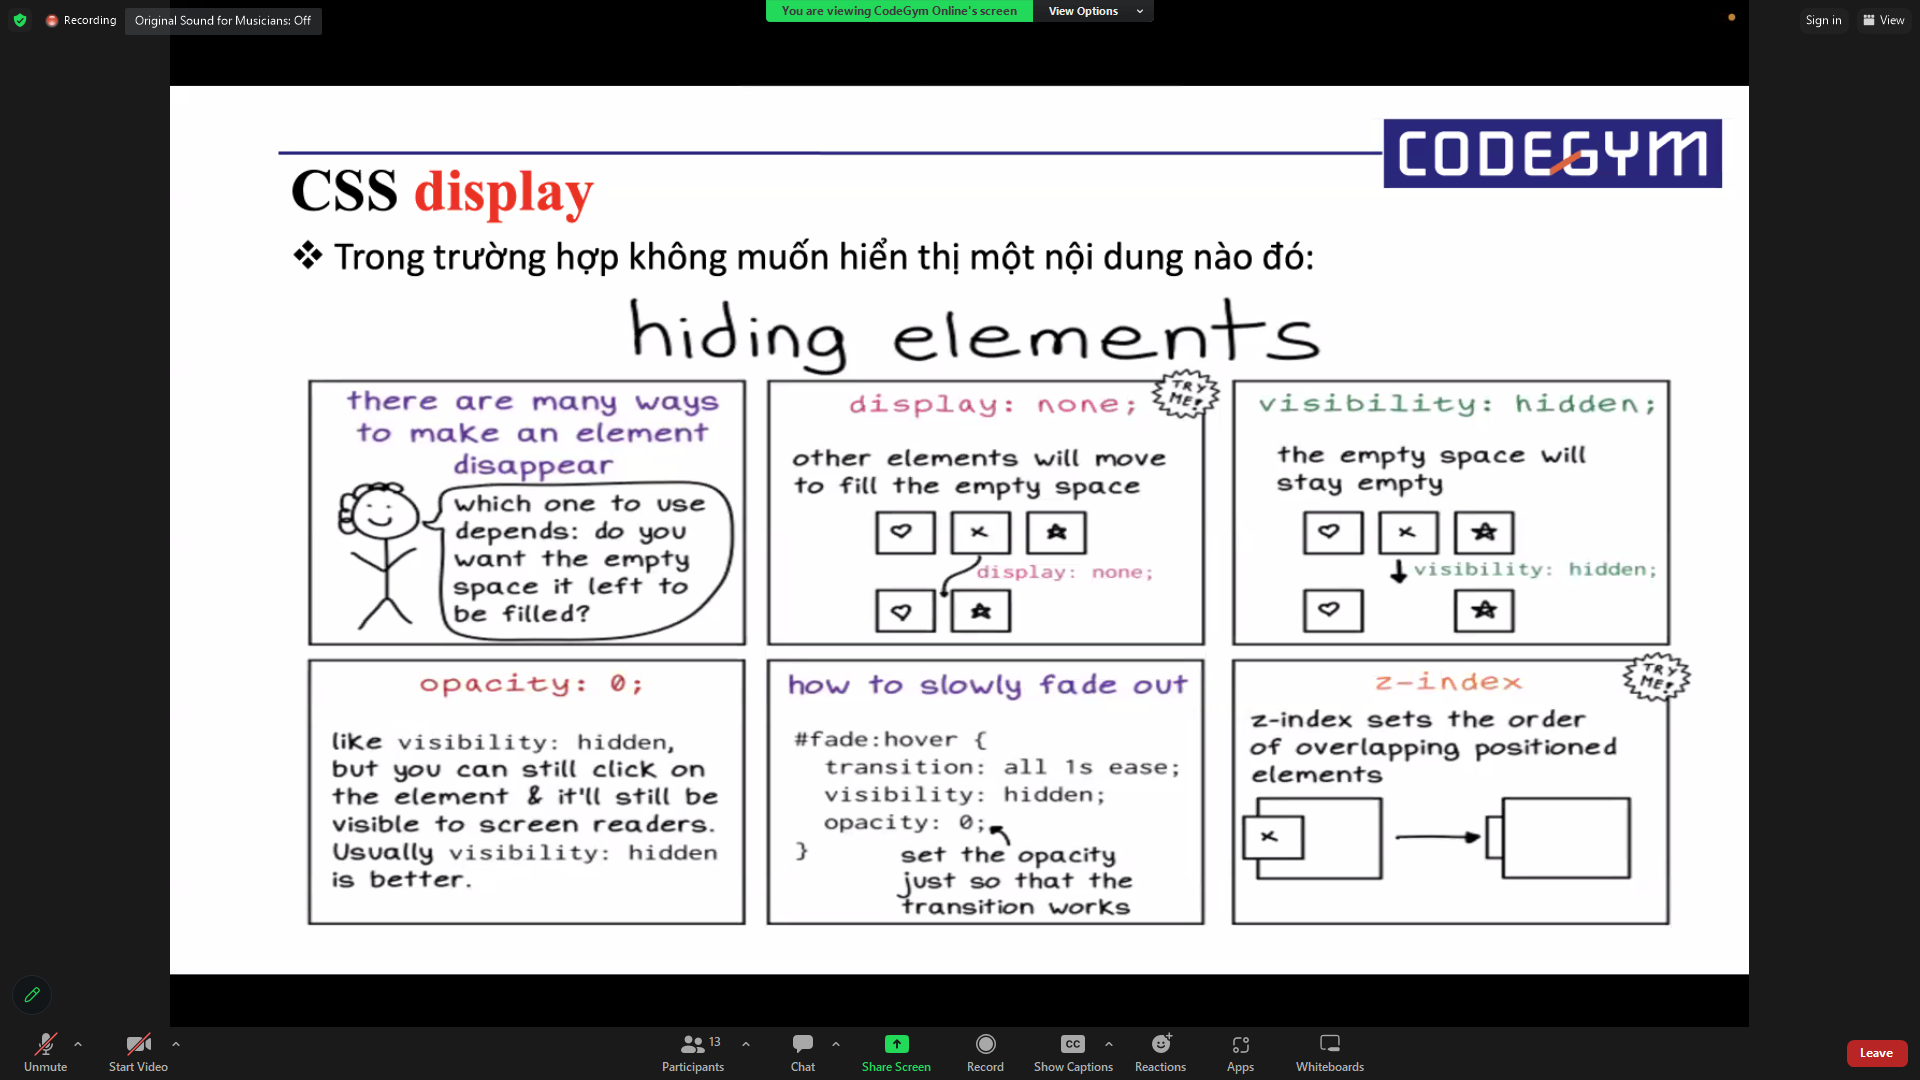 You are viewing CodeGym Online's screen
View Options
Recording
Original Sound for Musicians: Off
Sign in
View
CODEGYM
CSS display
❖ Trong trường hợp không muốn hiển thị một nội dung nào đó:
hiding elements
there are many ways
to make an element
disappear
which one to use
depends: do you
want the empty
space it left to
be filled?
TRY
ME!
display: none;
other elements will move
to fill the empty space
display: none;
visibility: hidden;
the empty space will
stay empty
visibility: hidden;
opacity: 0;
like visibility: hidden,
but you can still click on
the element & it'll still be
visible to screen readers.
Usually visibility: hidden
is better.
how to slowly fade out
#fade:hover {
transition: all 1s ease;
visibility: hidden;
opacity: 0;
}
set the opacity
just so that the
transition works
TRY
ME!
z-index
z-index sets the order
of overlapping positioned
elements
Unmute
Start Video
13
Participants
Chat
Share Screen
Record
CC
Show Captions
Reactions
Apps
Whiteboards
Leave